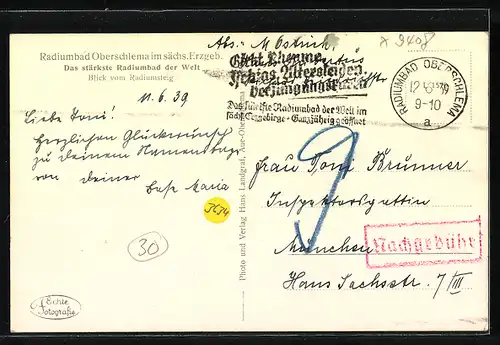 Radiumbad Oberschlema im sächs. Erzgeb.
Das stärkste Radiumbad der Welt
Blick vom Radiumsteig
11.6.39
Liebe Toni!
Herzlichen Glückwunsch
zu deinem Namenstage
von deiner
Base Maria
30
Echte
Fotografie
Photo und Verlag Hans Landgraf, Aue-Oberschlema
Abs: M.
Gicht, Rheuma,
Ischias, Alterleiden,
Verjüngungskuren
Das stärkste Radiumbad der Welt im
sächs. Erzgebirge - Ganzjährig geöffnet
x 9408
RADIUMBAD OBERSCHLEMA
12.6.39
9-10
a
9
Frau Toni Brunner
Inspektorsgattin
München
Hans Sachsstr. 7/III
Nachgebühr